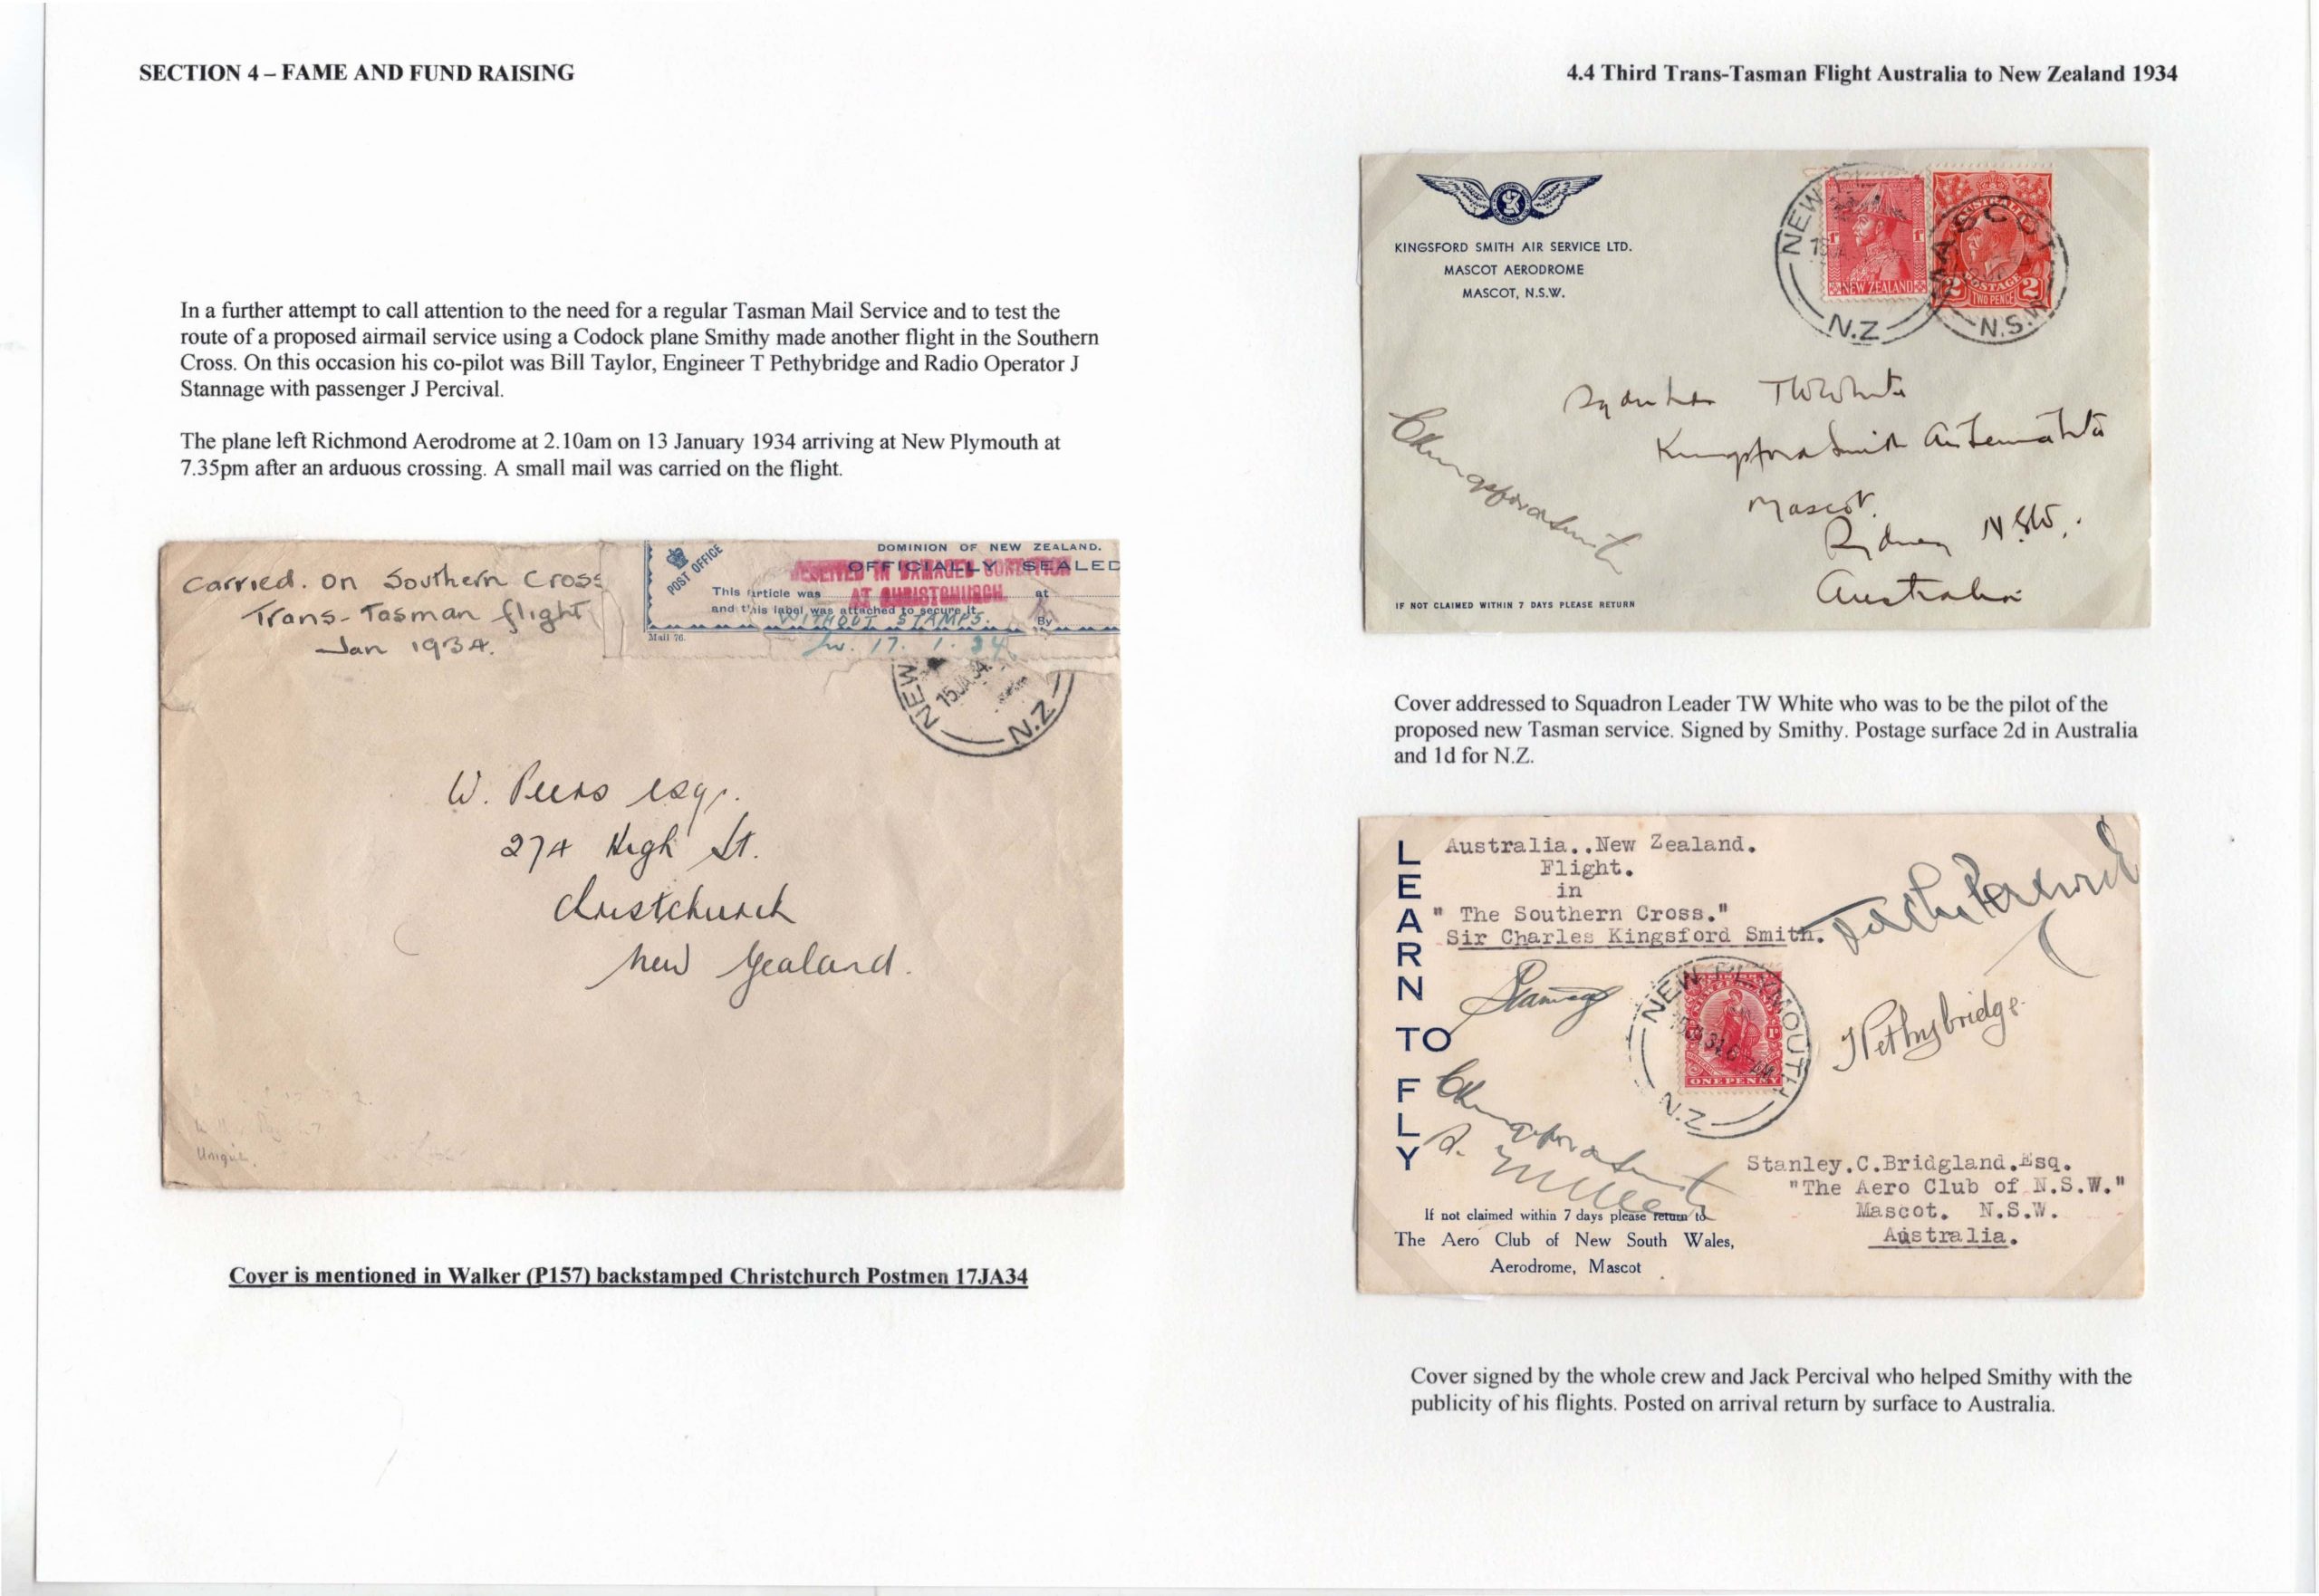 SECTION 4 – FAME AND FUND RAISING
4.4 Third Trans-Tasman Flight Australia to New Zealand 1934
In a further attempt to call attention to the need for a regular Tasman Mail Service and to test the
route of a proposed airmail service using a Codock plane Smithy made another flight in the Southern
Cross. On this occasion his co-pilot was Bill Taylor, Engineer T Pethybridge and Radio Operator J
Stannage with passenger J Percival.
The plane left Richmond Aerodrome at 2.10am on 13 January 1934 arriving at New Plymouth at
7.35pm after an arduous crossing. A small mail was carried on the flight.
Carried. on Southern Cross
Trans-Tasman flight
Jan 1934.
POST OFFICE
DOMINION OF NEW ZEALAND.
OFFICIALLY SEALED
RECEIVED IN DAMAGED CONDITION
AT CHRISTCHURCH
This article was at
and this label was attached to secure it.
WITHOUT STAMPS.
By
Mail 76.
17. 1. 34
NEW
15 JA 34
N.Z
W. Peers esq.
274 High St.
Christchurch
New Zealand.
Unique.
Cover is mentioned in Walker (P157) backstamped Christchurch Postmen 17JA34
KINGSFORD SMITH AIR SERVICE LTD.
MASCOT AERODROME
MASCOT, N.S.W.
NEW
N.Z
NEW ZEALAND
MASCOT
N.S.W
AUSTRALIA
POSTAGE
2 TWO PENCE 2
TW White
Kingsford Smith
Mascot.
Sydney N.S.W.
Australia
CKingsfordSmith
IF NOT CLAIMED WITHIN 7 DAYS PLEASE RETURN
Cover addressed to Squadron Leader TW White who was to be the pilot of the
proposed new Tasman service. Signed by Smithy. Postage surface 2d in Australia
and 1d for N.Z.
LEARN TO FLY
Australia..New Zealand.
Flight.
in
" The Southern Cross."
Sir Charles Kingsford Smith.
Jack Percival
NEW PLYMOUTH
N.Z
ONE PENNY
TPethybridge
CKingsfordSmith
Stanley.C.Bridgland.Esq.
"The Aero Club of N.S.W."
Mascot. N.S.W.
Australia.
If not claimed within 7 days please return to
The Aero Club of New South Wales,
Aerodrome, Mascot
Cover signed by the whole crew and Jack Percival who helped Smithy with the
publicity of his flights. Posted on arrival return by surface to Australia.